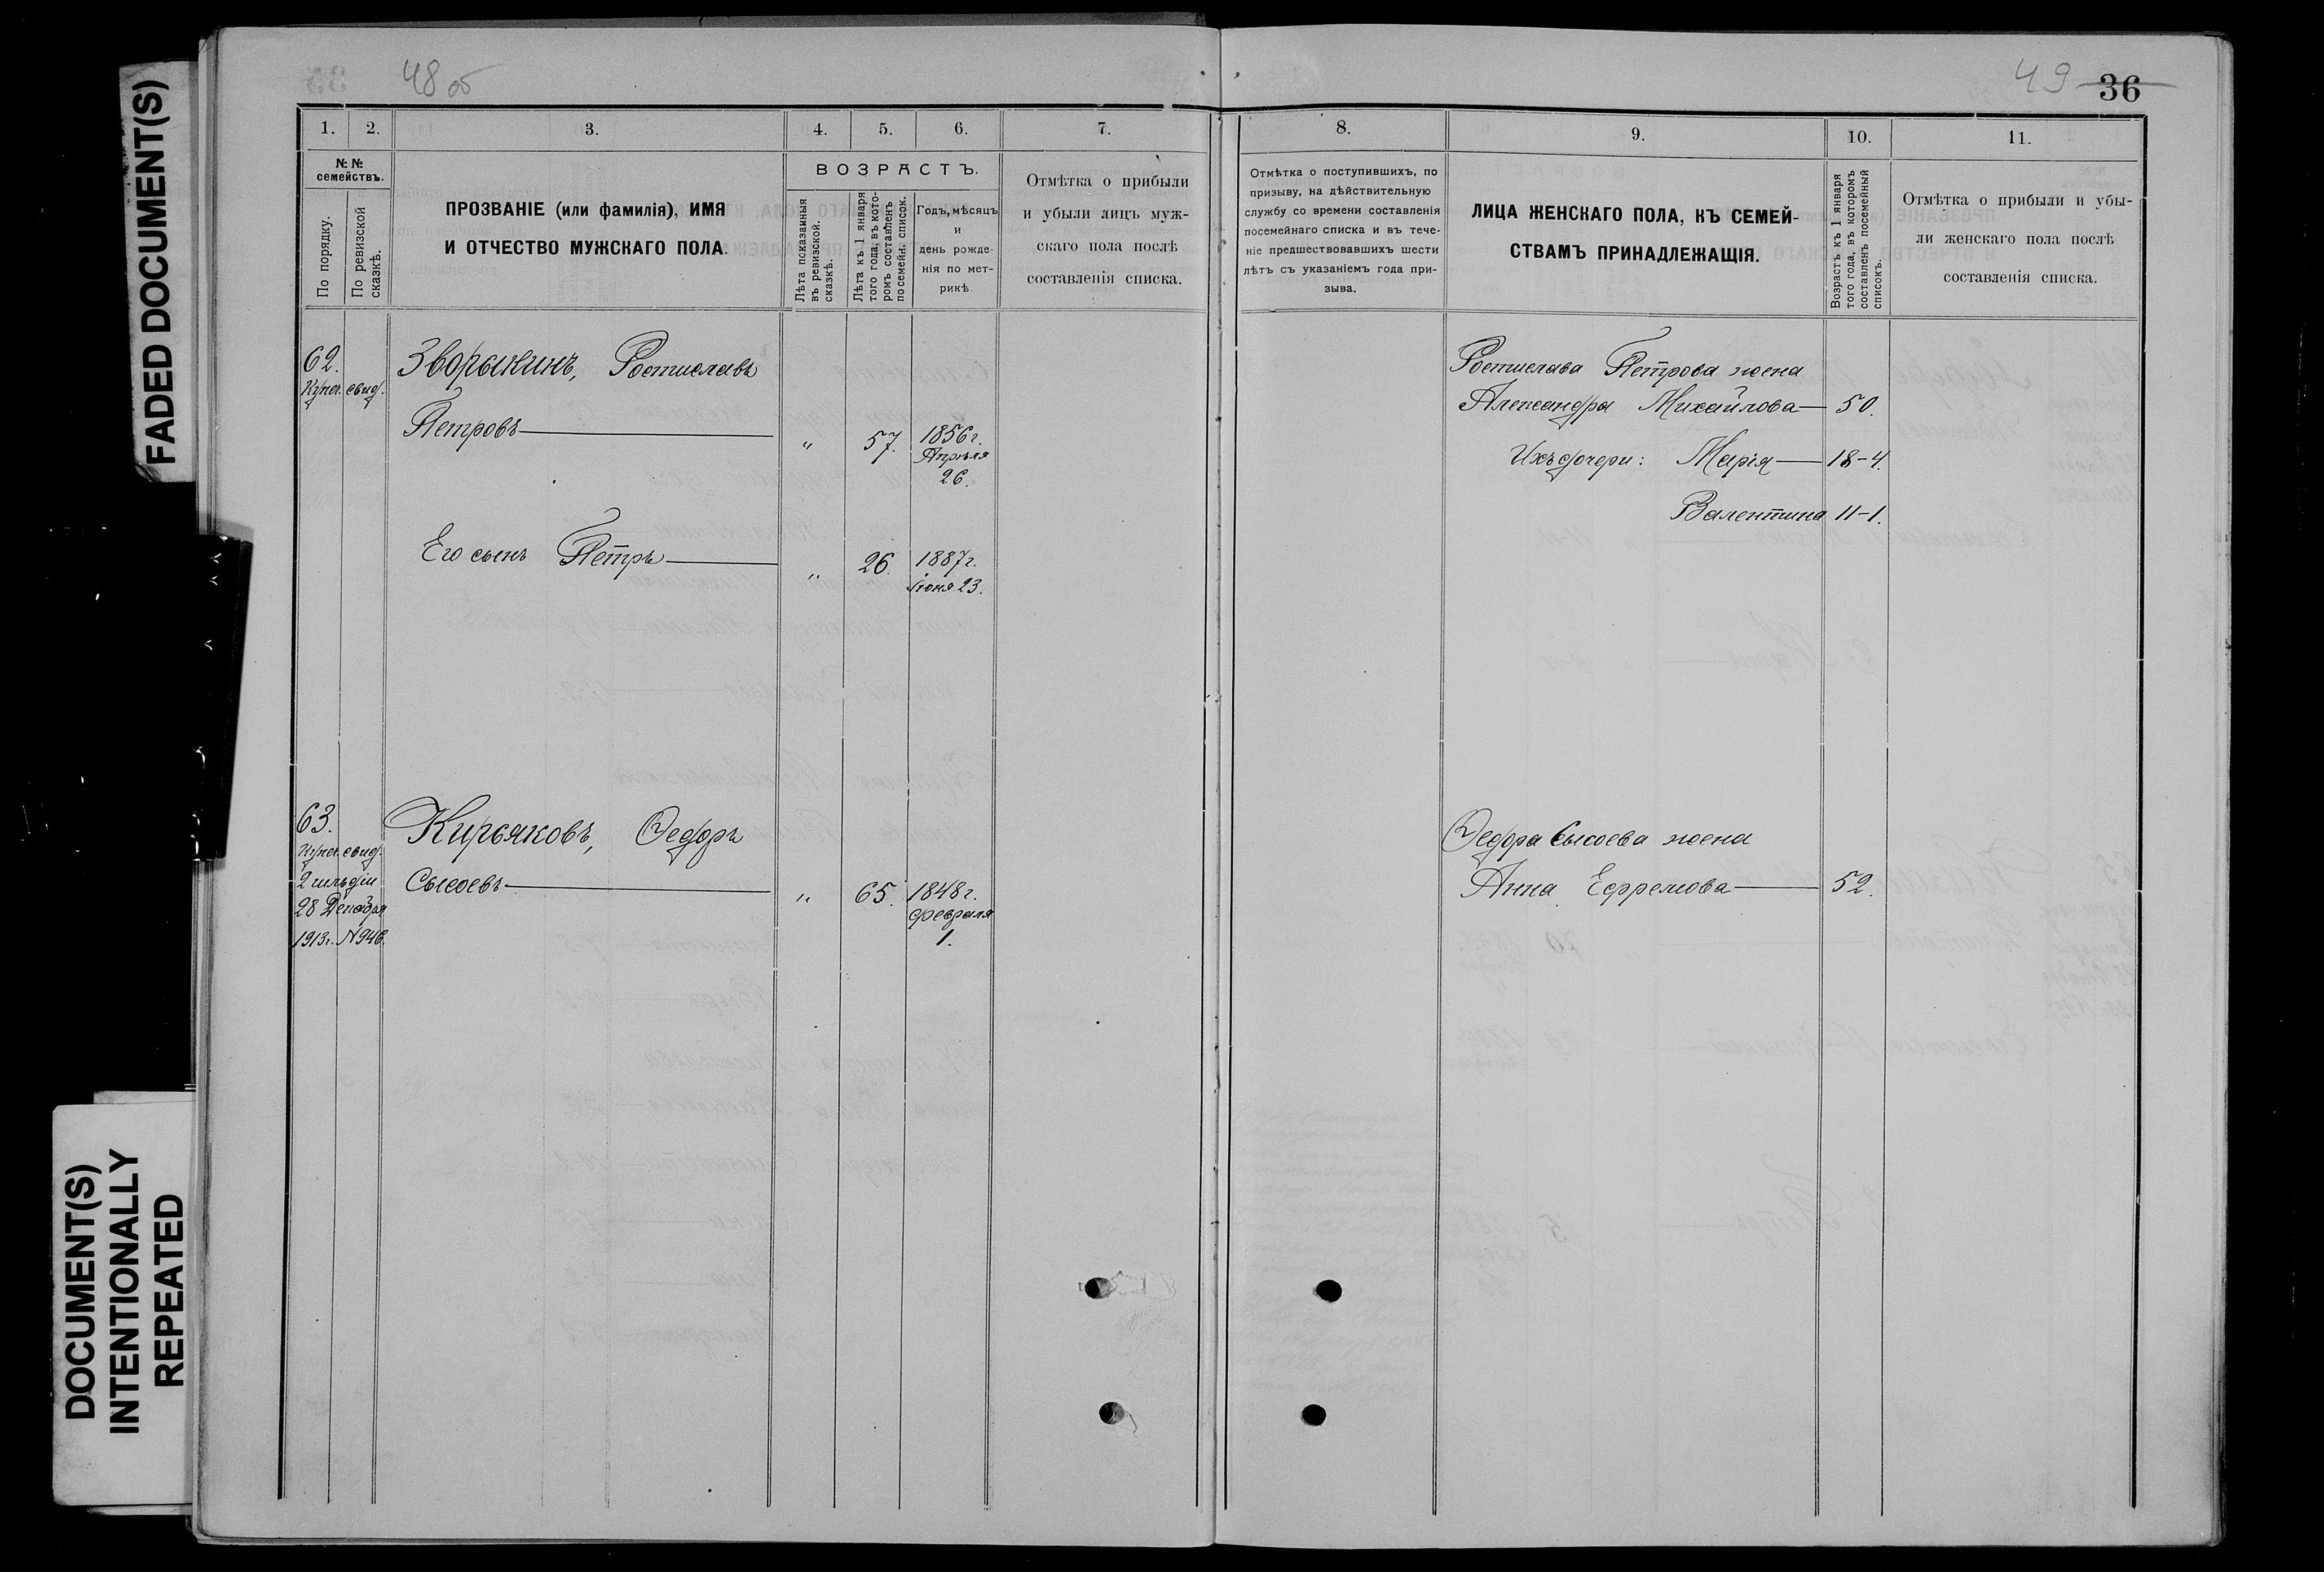 FADED DOCUMENT(S)
DOCUMENT(S)
INTENTIONALLY
REPEATED
48 об
49 36
1. 2. 3. 4. 5. 6. 7.
№ №
семействъ.
По порядку.
По ревизской
сказкѣ.
ПРОЗВАНІЕ (или фамилія), ИМЯ
И ОТЧЕСТВО МУЖСКАГО ПОЛА.
ВОЗРАСТЪ.
Лѣта показанныя
въ ревизской.
сказкѣ.
Лѣта къ 1 января
того года, въ кото-
ромъ составленъ
посемейн. список.
Годъ, мѣсяцъ
и
день рожде-
нія по мет-
рикѣ.
Отмѣтка о прибыли
и убыли лицъ муж-
скаго пола послѣ
составленія списка.
62.
Купеч. свид.
Зворыкинъ, Ростиславъ
Петровъ — „ 57. 1856 г.
Апрѣля
26.
Его сынъ Петръ — „ 26. 1887 г.
Іюня 23.
63.
Купеч. свид.
2 гильдіи
28 Декабря
1913 г. N 946.
Кирьяковъ, Ѳедоръ
Сысоевъ — „ 65. 1848 г.
февраля
1.
8. 9. 10. 11.
Отмѣтка о поступившихъ, по
призыву, на дѣйствительную
службу со времени составленія
посемейнаго списка и въ тече-
ніе предшествовавшихъ шести
лѣтъ съ указаніемъ года при-
зыва.
ЛИЦА ЖЕНСКАГО ПОЛА, КЪ СЕМЕЙ-
СТВАМЪ ПРИНАДЛЕЖАЩІЯ.
Возрастъ къ 1 января
того года, въ которомъ
составленъ посемейный
списокъ.
Отмѣтка о прибыли и убы-
ли женскаго пола послѣ
составленія списка.
Ростислава Петрова жена
Александра Михайлова — 50.
Ихъ дочери: Марія — 18-4.
Валентина 11-1.
Ѳедора Сысоева жена
Анна Ефремова — 52.